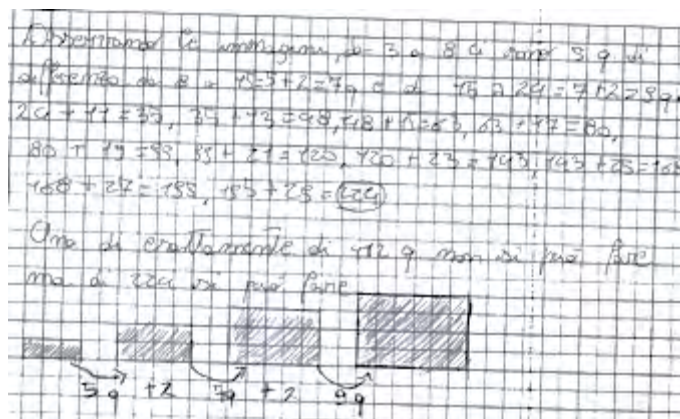 Osserviamo le immagini, da 3 a 8 ci sono 5 q di
differenza da 8 a 15=5+2=7q e da 15 a 24=7+2=9q
24+11=35, 35+13=48, 48+15=63, 63+17=80,
80+19=99, 99+21=120, 120+23=143, 143+25=168
168+27=195, 195+29=224
Una di esattamente di 412 q non si può fare
ma di 224 si può fare
5q +2 7q +2 9q